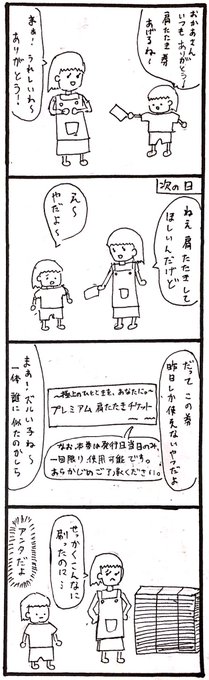 おかあさん
いつもありがとう〜
肩たたき券
あげるね〜
まぁ!うれしいわ〜
ありがとう!
次の日
ねえ肩たたきして
ほしいんだけど
え〜
やだよ〜
だってこの券
昨日しか使えないやつだよ
〜極上のひとときを、あなたに〜
プレミアム肩たたきチケット
なお、本券は発行日当日のみ、
一回限り使用可能です。
あらかじめご了承ください。
まぁ!ズルい子ね〜
一体誰に似たのかしら
せっかくこんなに
刷ったのに…
アンタだよ